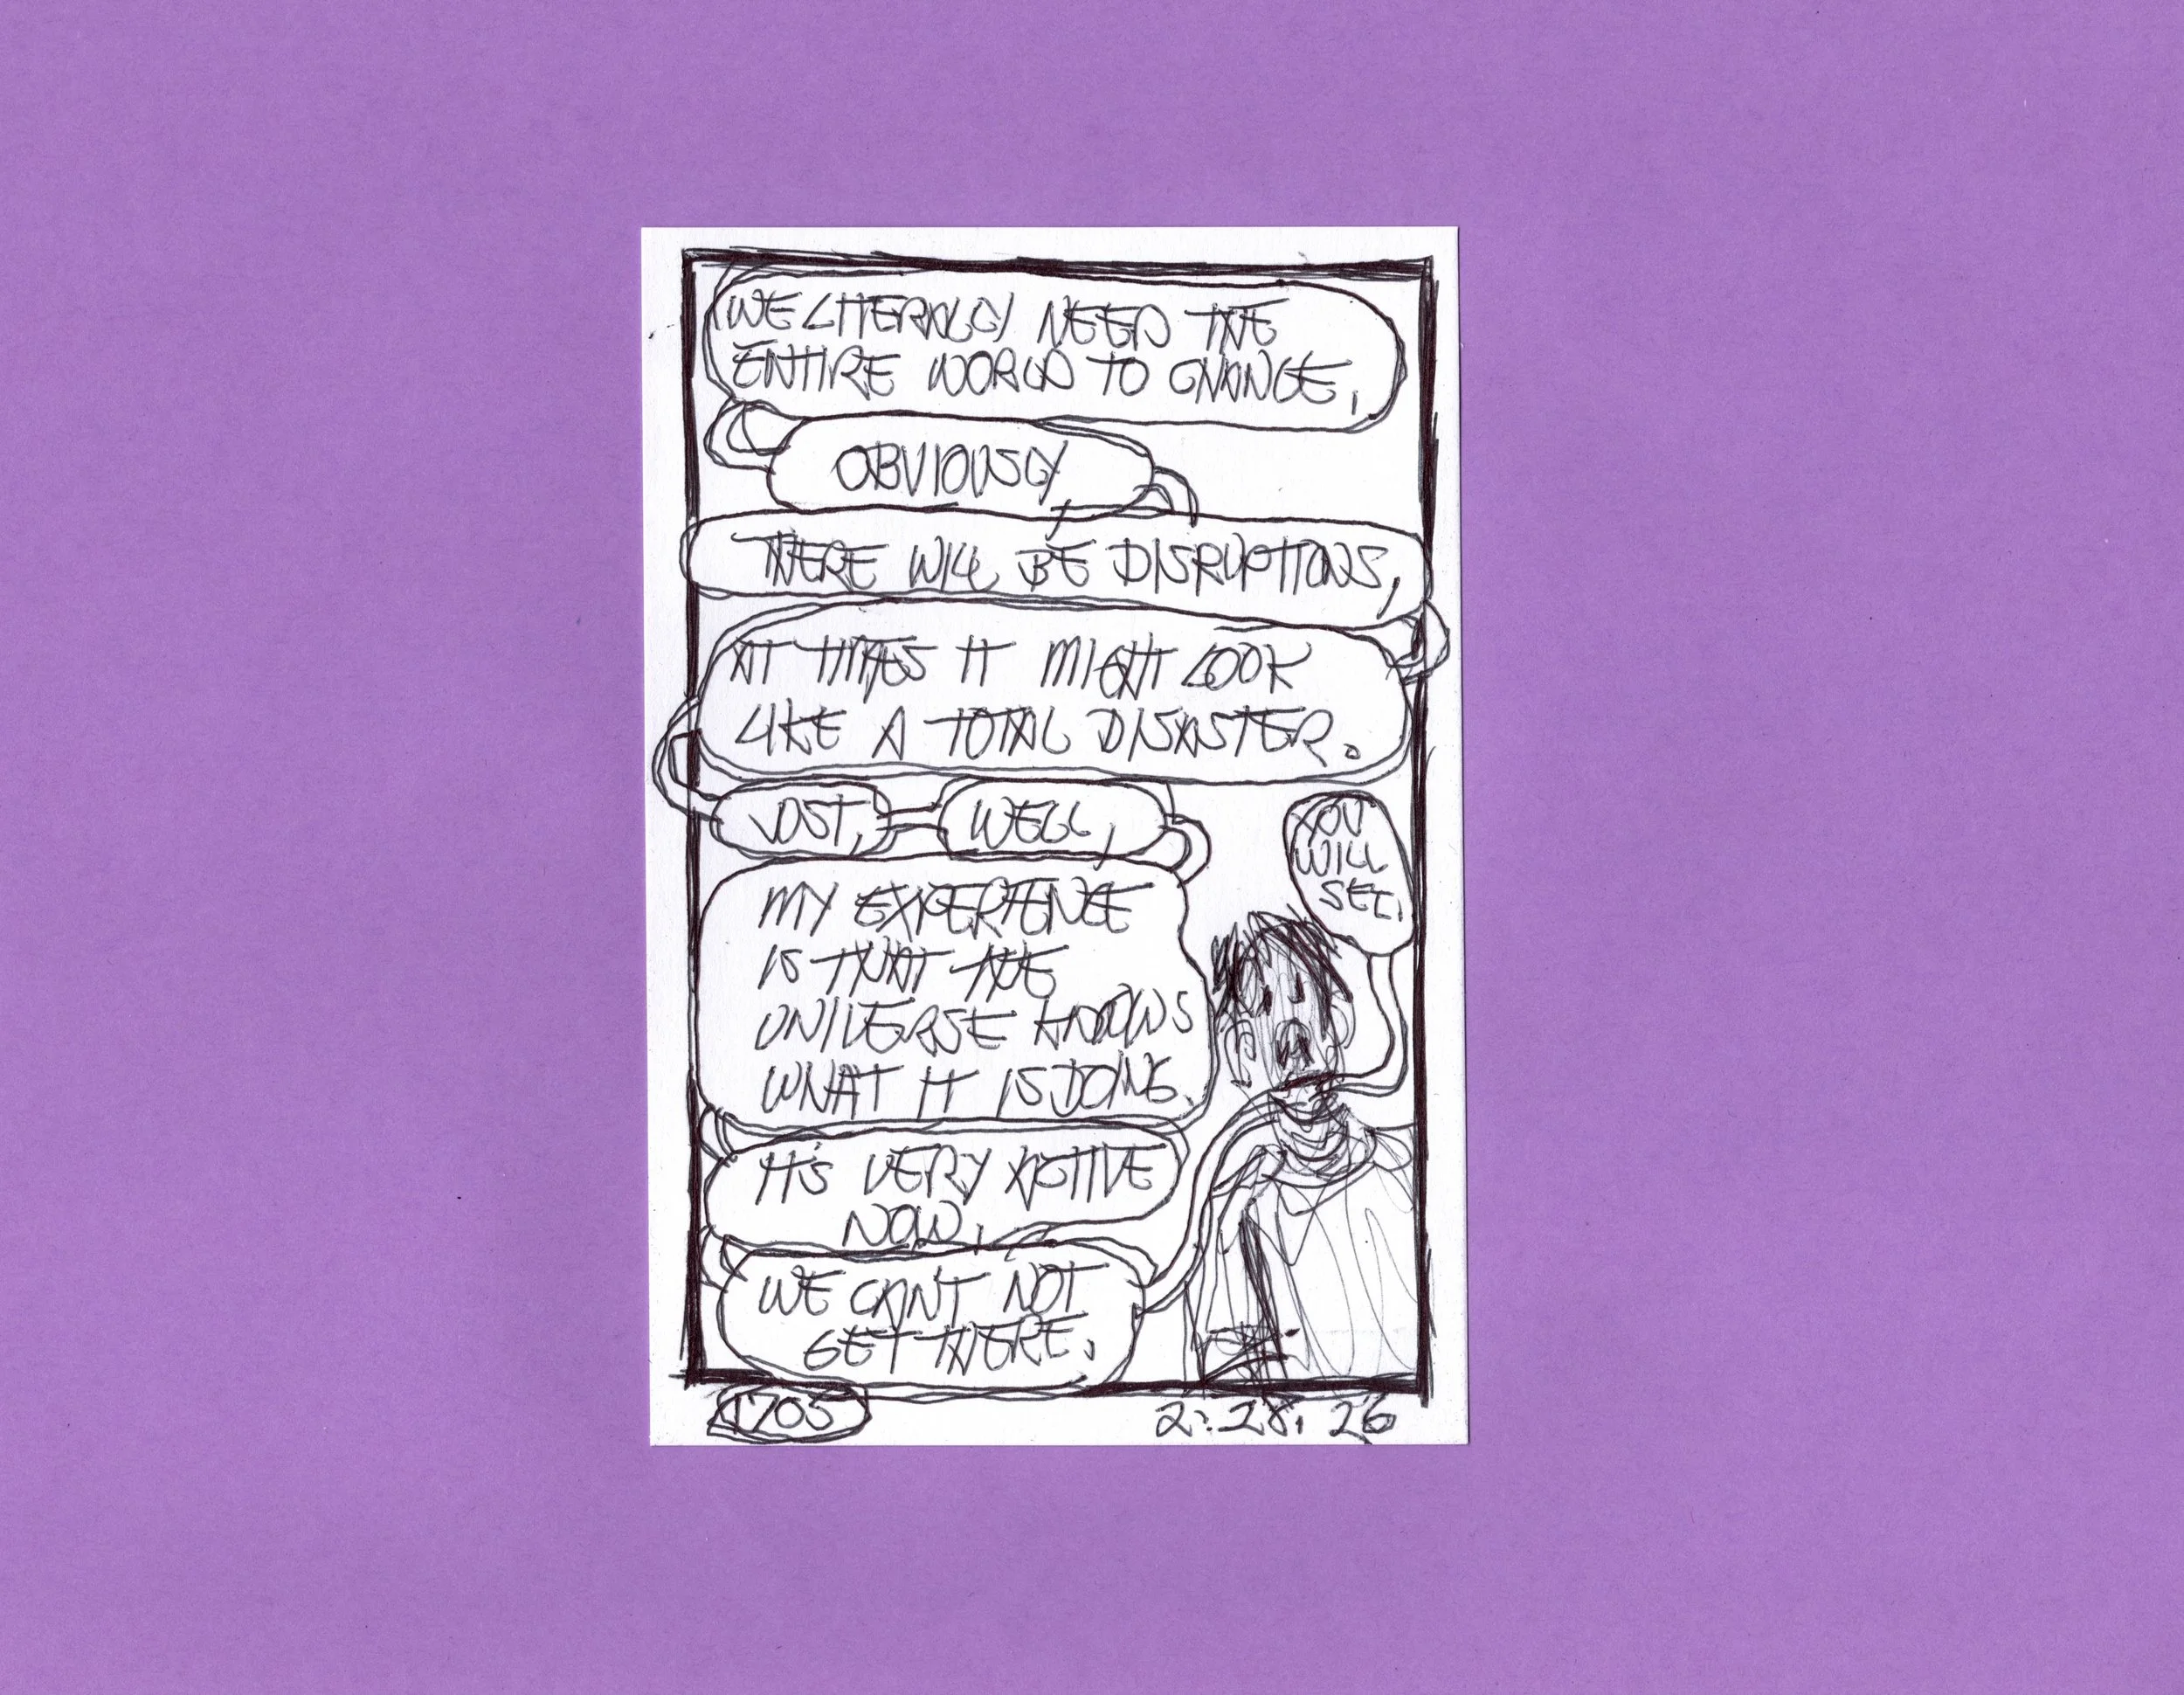 WE LITERALLY NEED THE
ENTIRE WORLD TO CHANGE.
OBVIOUSLY,
THERE WILL BE DISRUPTIONS,
AT TIMES IT MIGHT LOOK
LIKE A TOTAL DISASTER.
JUST, WELL,
MY EXPERIENCE
IS THAT THE
UNIVERSE KNOWS
WHAT IT IS DOING.
IT'S VERY ACTIVE
NOW.
WE CAN'T NOT
GET THERE.
YOU
WILL
SEE.
1705
2.28.26